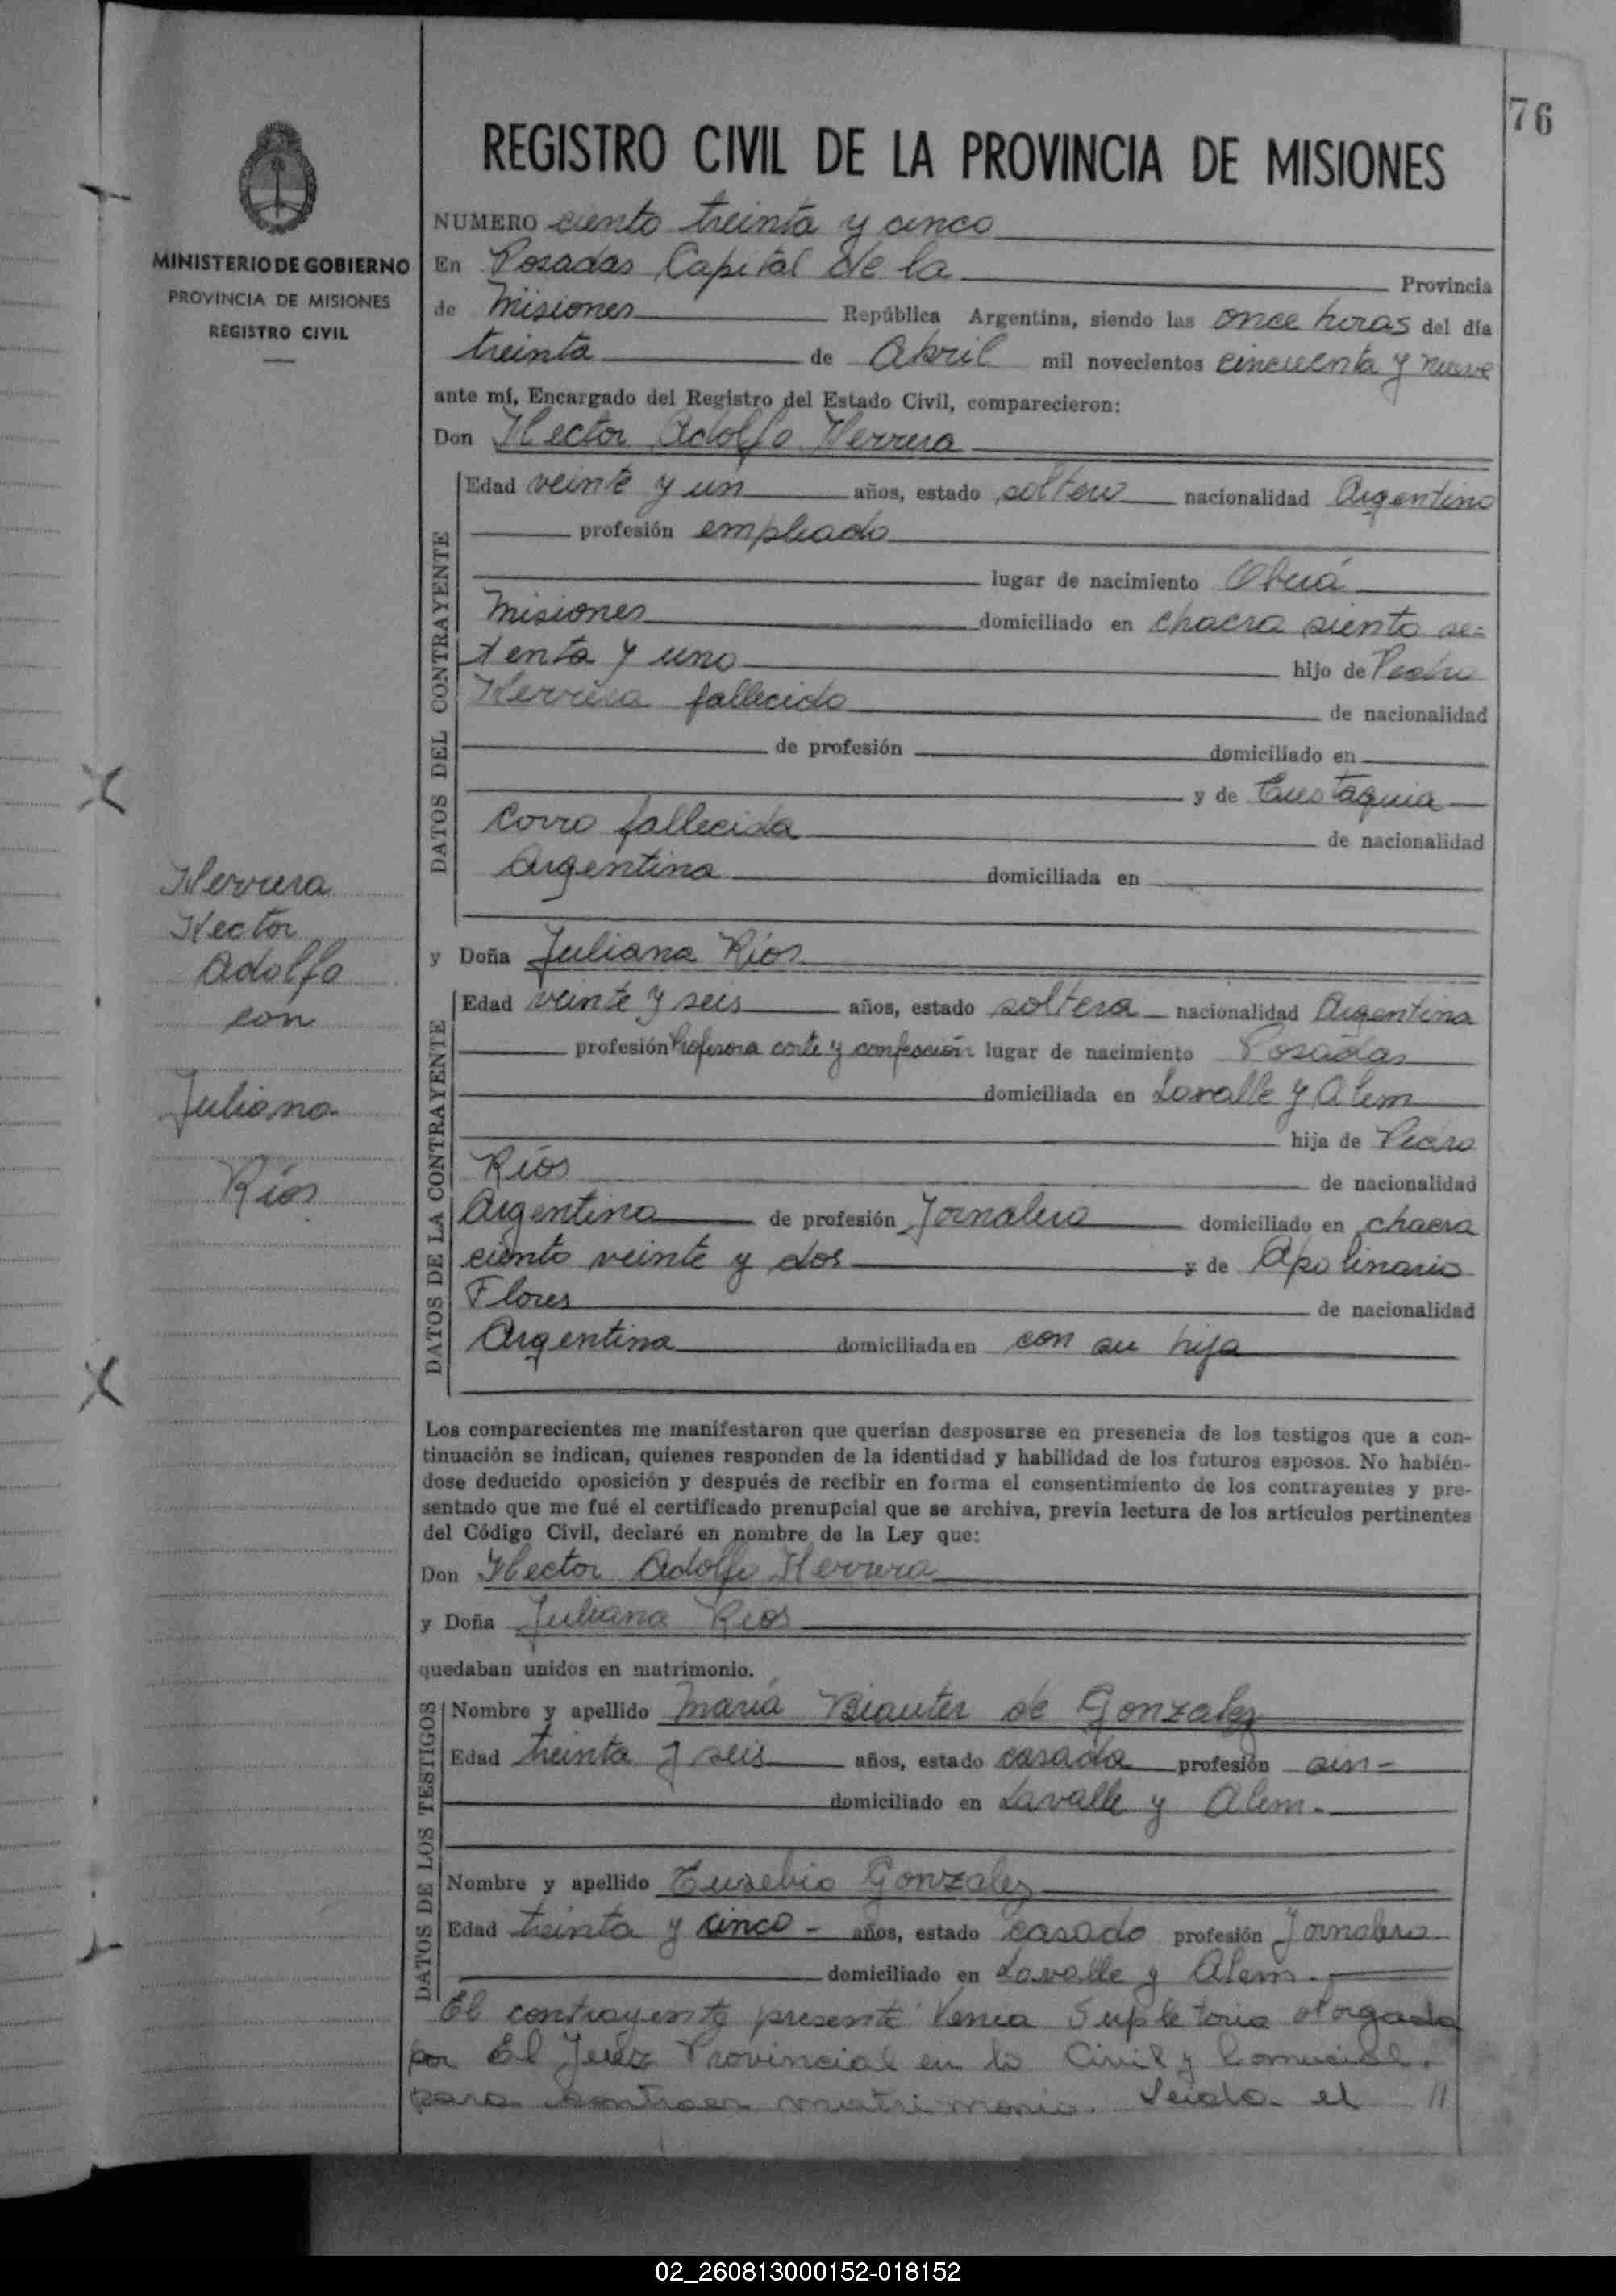 76
REGISTRO CIVIL DE LA PROVINCIA DE MISIONES
MINISTERIO DE GOBIERNO
PROVINCIA DE MISIONES
REGISTRO CIVIL
NUMERO ciento treinta y cinco
En Posadas Capital de la Provincia
de Misiones República Argentina, siendo las once horas del día
treinta de Abril mil novecientos cincuenta y nueve
ante mí, Encargado del Registro del Estado Civil, comparecieron:
Don Hector Adolfo Herrera
DATOS DEL CONTRAYENTE
Edad veinte y un años, estado soltero nacionalidad Argentino
profesión empleado
lugar de nacimiento Oberá
Misiones domiciliado en chacra siento se-
tenta y uno hijo de Pedro
Herrera fallecido de nacionalidad
de profesión domiciliado en
y de Eustaquia
Corro fallecida de nacionalidad
Argentina domiciliada en
Herrera
Hector
Adolfo
con
Juliana
Ríos
y Doña Juliana Ríos
DATOS DE LA CONTRAYENTE
Edad veinte y seis años, estado soltera nacionalidad Argentina
profesión Profesora corte y confección lugar de nacimiento Posadas
domiciliada en Lavalle y Alem
hija de Pedro
Ríos de nacionalidad
Argentino de profesión Jornalero domiciliado en chacra
ciento veinte y dos y de Apolinaria
Flores de nacionalidad
Argentina domiciliada en con su hija
Los comparecientes me manifestaron que querían desposarse en presencia de los testigos que a con-
tinuación se indican, quienes responden de la identidad y habilidad de los futuros esposos. No habién-
dose deducido oposición y después de recibir en forma el consentimiento de los contrayentes y pre-
sentado que me fué el certificado prenupcial que se archiva, previa lectura de los artículos pertinentes
del Código Civil, declaré en nombre de la Ley que:
Don Hector Adolfo Herrera
y Doña Juliana Ríos
quedaban unidos en matrimonio.
DATOS DE LOS TESTIGOS
Nombre y apellido María de Gonzalez
Edad treinta y seis años, estado casada profesión sin-
domiciliado en Lavalle y Alem.
Nombre y apellido Eusebio Gonzalez
Edad treinta y cinco - años, estado casado profesión Jornalero
domiciliado en Lavalle y Alem.
El contrayente presentó Venia Supletoria otorgada
por El Juez Provincial en lo Civil y Comercial.
para contraer matrimonio. Leida el //
02_260813000152-018152